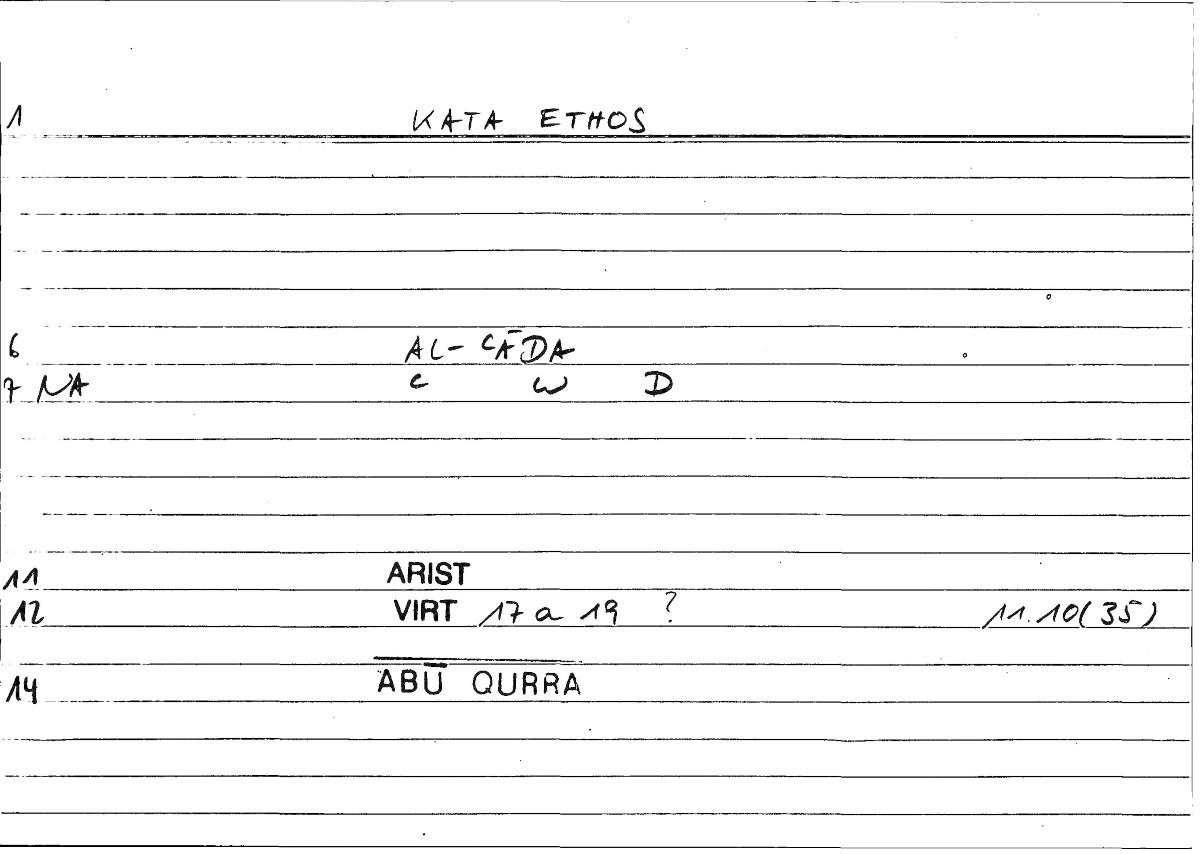 1 KATA ETHOS
6 AL-ʿĀDA
7 NA ʿ W D
11 ARIST
12 VIRT 17 a 19 ? 11.10(35)
14 ABŪ QURRA